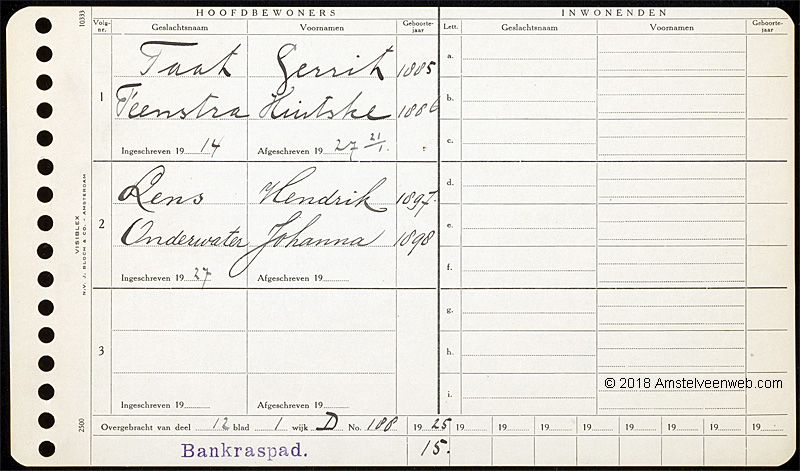 HOOFDBEWONERS INWONENDEN
Volg-nr. Geslachtsnaam Voornamen Geboorte-jaar Lett. Geslachtsnaam Voornamen Geboorte-jaar
10333
1
Taat Gerrit 1885
Teenstra Hiltske 1886
Ingeschreven 19 14 Afgeschreven 19 27 21/1.
2
Rens Hendrik 1897.
Onderwater Johanna 1898
Ingeschreven 19 27 Afgeschreven 19
3
Ingeschreven 19 Afgeschreven 19
a.
b.
c.
d.
e.
f.
g.
h.
i.
VISIBLEX
N.V. J. BLOCH & CO. - AMSTERDAM
2500
© 2018 Amstelveenweb.com
Overgebracht van deel 12 blad 1 wijk D No. 188 19 25 19 19 19 19 19 19 19 19
Bankraspad. 15.